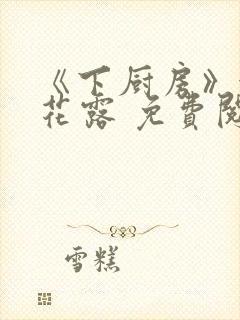 《下厨房》
花露 免費閱
雪糕